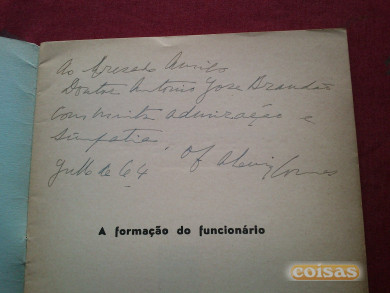 Ao prezado Amigo
Doutor Antonio José Brandão
com muita admiração e
simpatia,
Julho de 64 Of.
A formação do funcionário
coisas